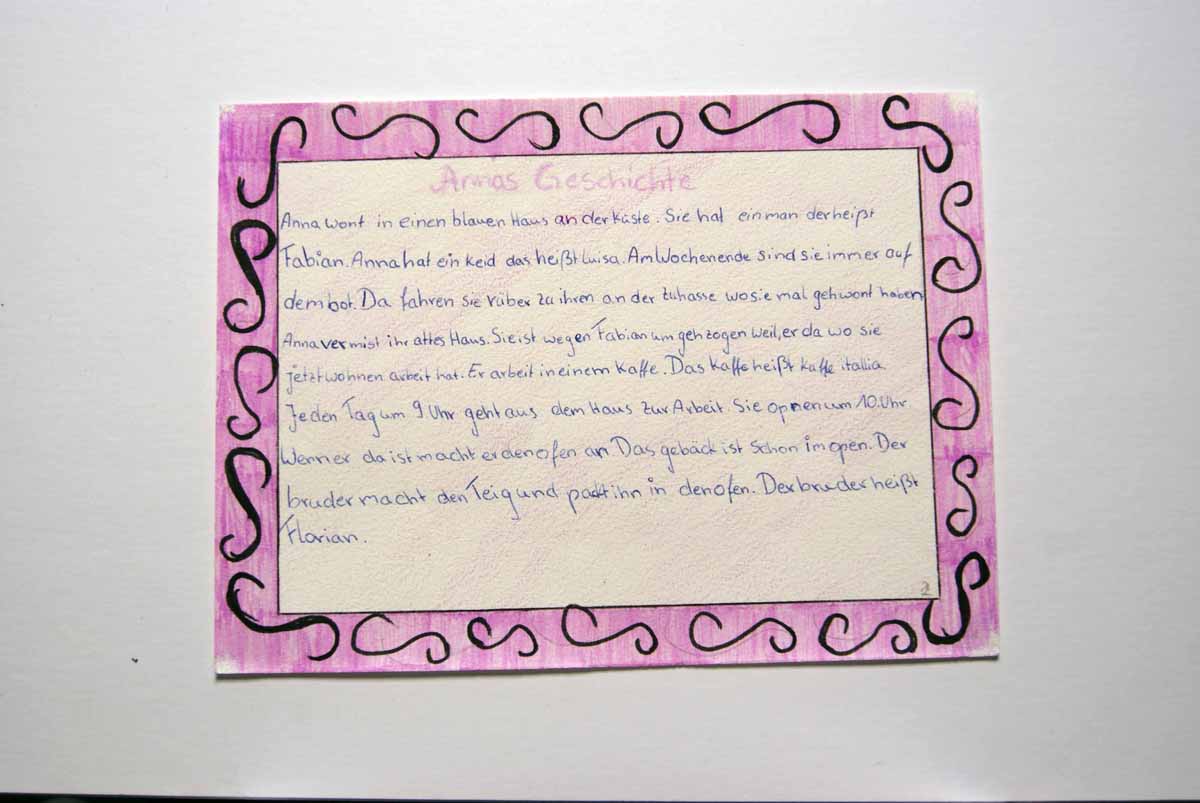 Annas Geschichte
Anna wont in einen blauen Haus an der Küste. Sie hat einman der heißt
Fabian. Anna hat ein Keid das heißt Luisa. Am Wochenende sind sie immer auf
dem bot. Da fahren sie rüber zu ihren an der zuhasse wo sie mal gehwont haben
Anna vermist ihr altes Haus. Sie ist wegen Fabian um gehzogen weil, er da wo sie
jetzt wohnen arbeit hat. Er arbeit in einem Kaffe. Das Kaffe heißt kaffe itallia.
Jeden Tag um 9 Uhr geht aus dem Haus zur Arbeit. Sie opnen um 10. Uhr.
Wenn er da ist macht er den ofen an. Das gebäck ist schon im open. Der
bruder macht den Teig und packt ihn in den ofen. Der bruder heißt
Florian.
2